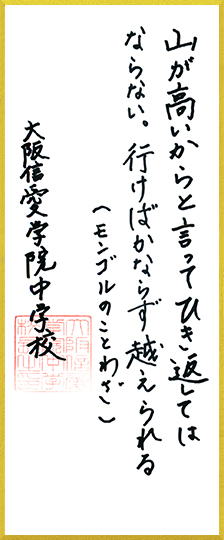 山が高いからと言ってひき返しては
ならない。行けばかならず越えられる
(モンゴルのことわざ)
大阪信愛学院中学校